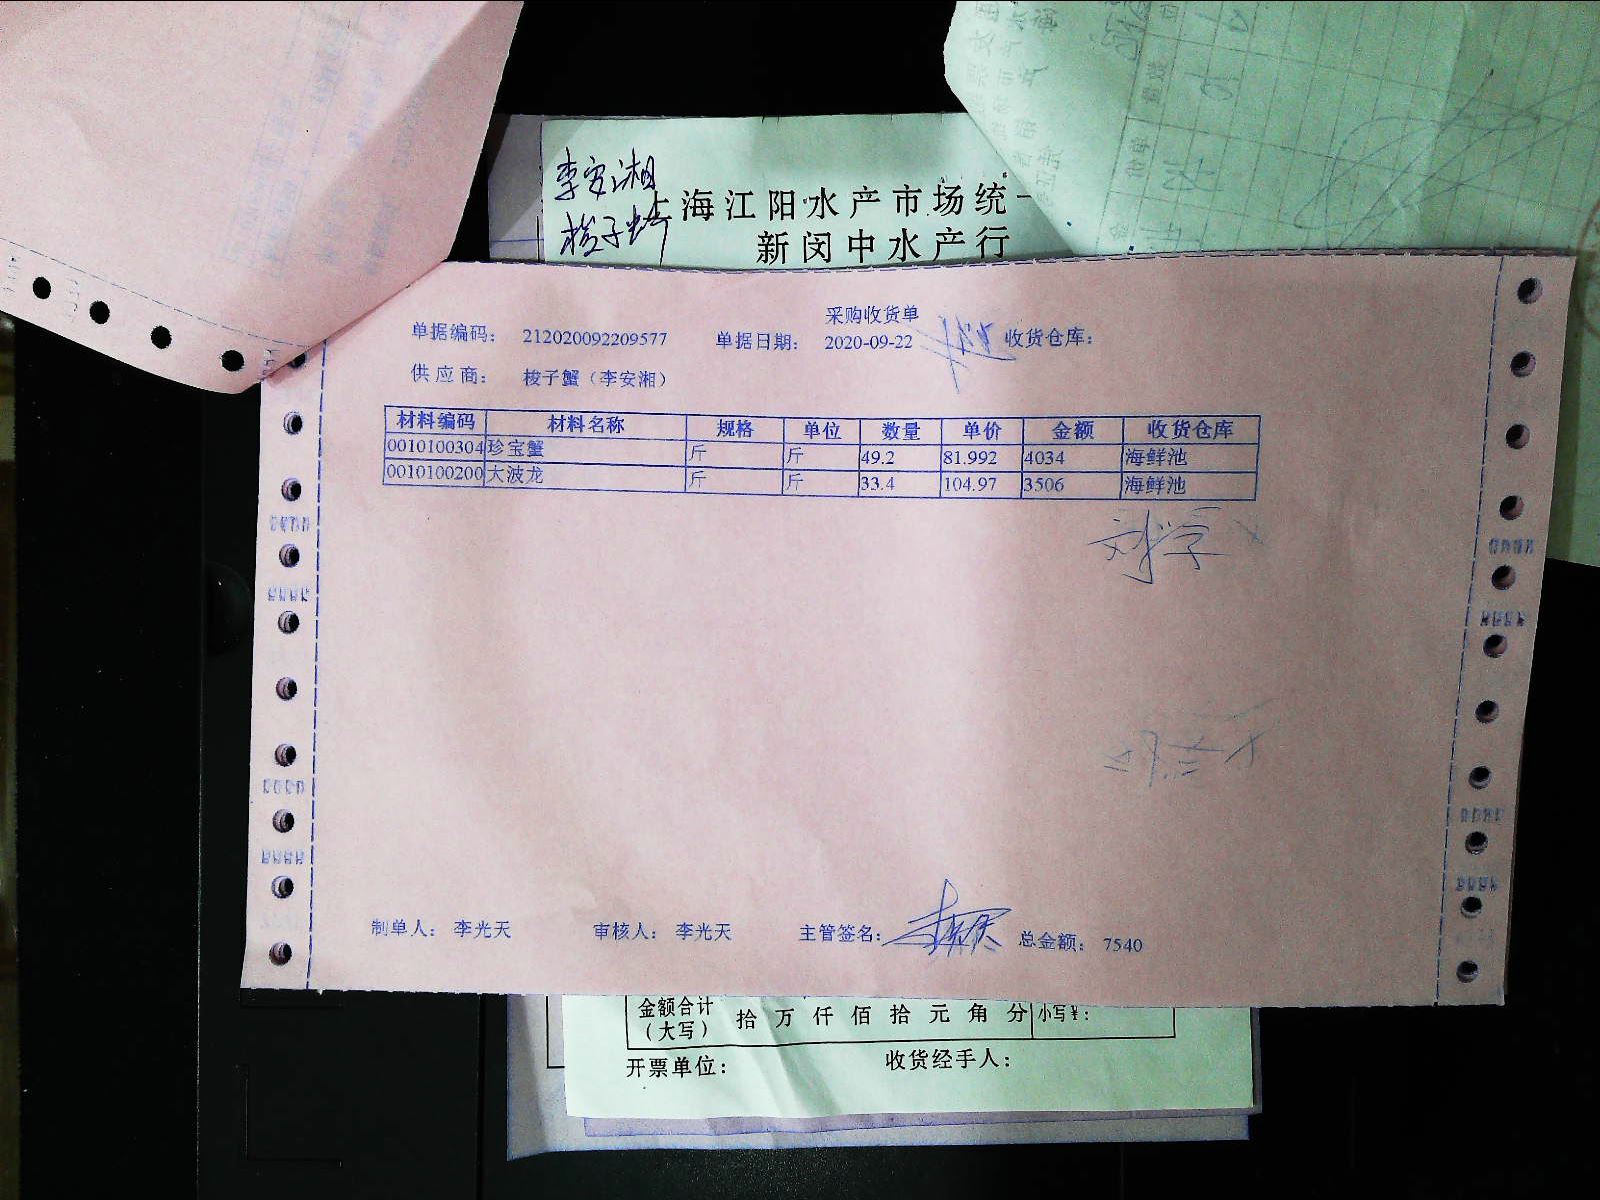 李安湘
梭子蟹
上海江阳水产市场统一
新闵中水产行
采购收货单
单据编码： 212020092209577 单据日期： 2020-09-22 收货仓库：
供应商： 梭子蟹（李安湘）
材料编码 材料名称 规格 单位 数量 单价 金额 收货仓库
0010100304 珍宝蟹 斤 斤 49.2 81.992 4034 海鲜池
0010100200 大波龙 斤 斤 33.4 104.97 3506 海鲜池
制单人： 李光天 审核人： 李光天 主管签名： 总金额： 7540
金额合计（大写） 拾 万 仟 佰 拾 元 角 分 小写￥：
开票单位： 收货经手人：